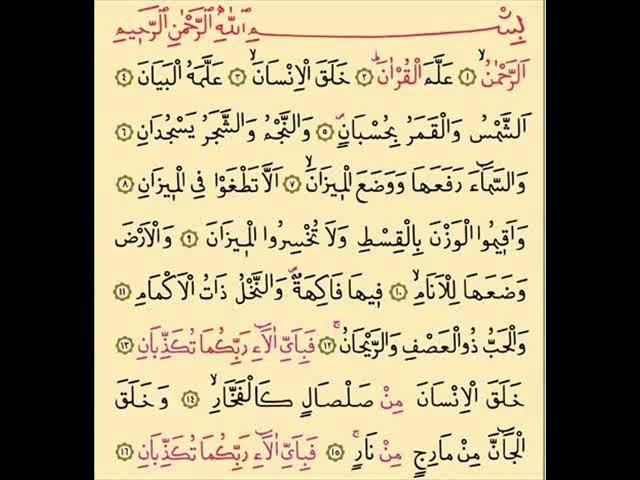 بِسْــــــمِ اللّٰهِ الرَّحْمٰنِ الرَّحٖيمِ
اَلرَّحْمٰنُۙ ﴿١﴾ عَلَّمَ الْقُرْاٰنَۜ ﴿٢﴾ خَلَقَ الْاِنْسَانَۙ ﴿٣﴾ عَلَّمَهُ الْبَيَانَ ﴿٤﴾
اَلشَّمْسُ وَالْقَمَرُ بِحُسْبَانٍۖ ﴿٥﴾ وَالنَّجْمُ وَالشَّجَرُ يَسْجُدَانِ ﴿٦﴾
وَالسَّمَٓاءَ رَفَعَهَا وَوَضَعَ الْمٖيزَانَۙ ﴿٧﴾ اَلَّا تَطْغَوْا فِي الْمٖيزَانِ ﴿٨﴾
وَاَقٖيمُوا الْوَزْنَ بِالْقِسْطِ وَلَا تُخْسِرُوا الْمٖيزَانَ ﴿٩﴾ وَالْاَرْضَ
وَضَعَهَا لِلْاَنَامِۙ ﴿١٠﴾ فٖيهَا فَاكِهَةٌۖ وَالنَّخْلُ ذَاتُ الْاَكْمَامِ ﴿١١﴾
وَالْحَبُّ ذُو الْعَصْفِ وَالرَّيْحَانُۚ ﴿١٢﴾ فَبِاَيِّ اٰلَٓاءِ رَبِّكُمَا تُكَذِّبَانِ ﴿١٣﴾
خَلَقَ الْاِنْسَانَ مِنْ صَلْصَالٍ كَالْفَخَّارِۙ ﴿١٤﴾ وَخَلَقَ
الْجَٓانَّ مِنْ مَارِجٍ مِنْ نَارٍۚ ﴿١٥﴾ فَبِاَيِّ اٰلَٓاءِ رَبِّكُمَا تُكَذِّبَانِ ﴿١٦﴾